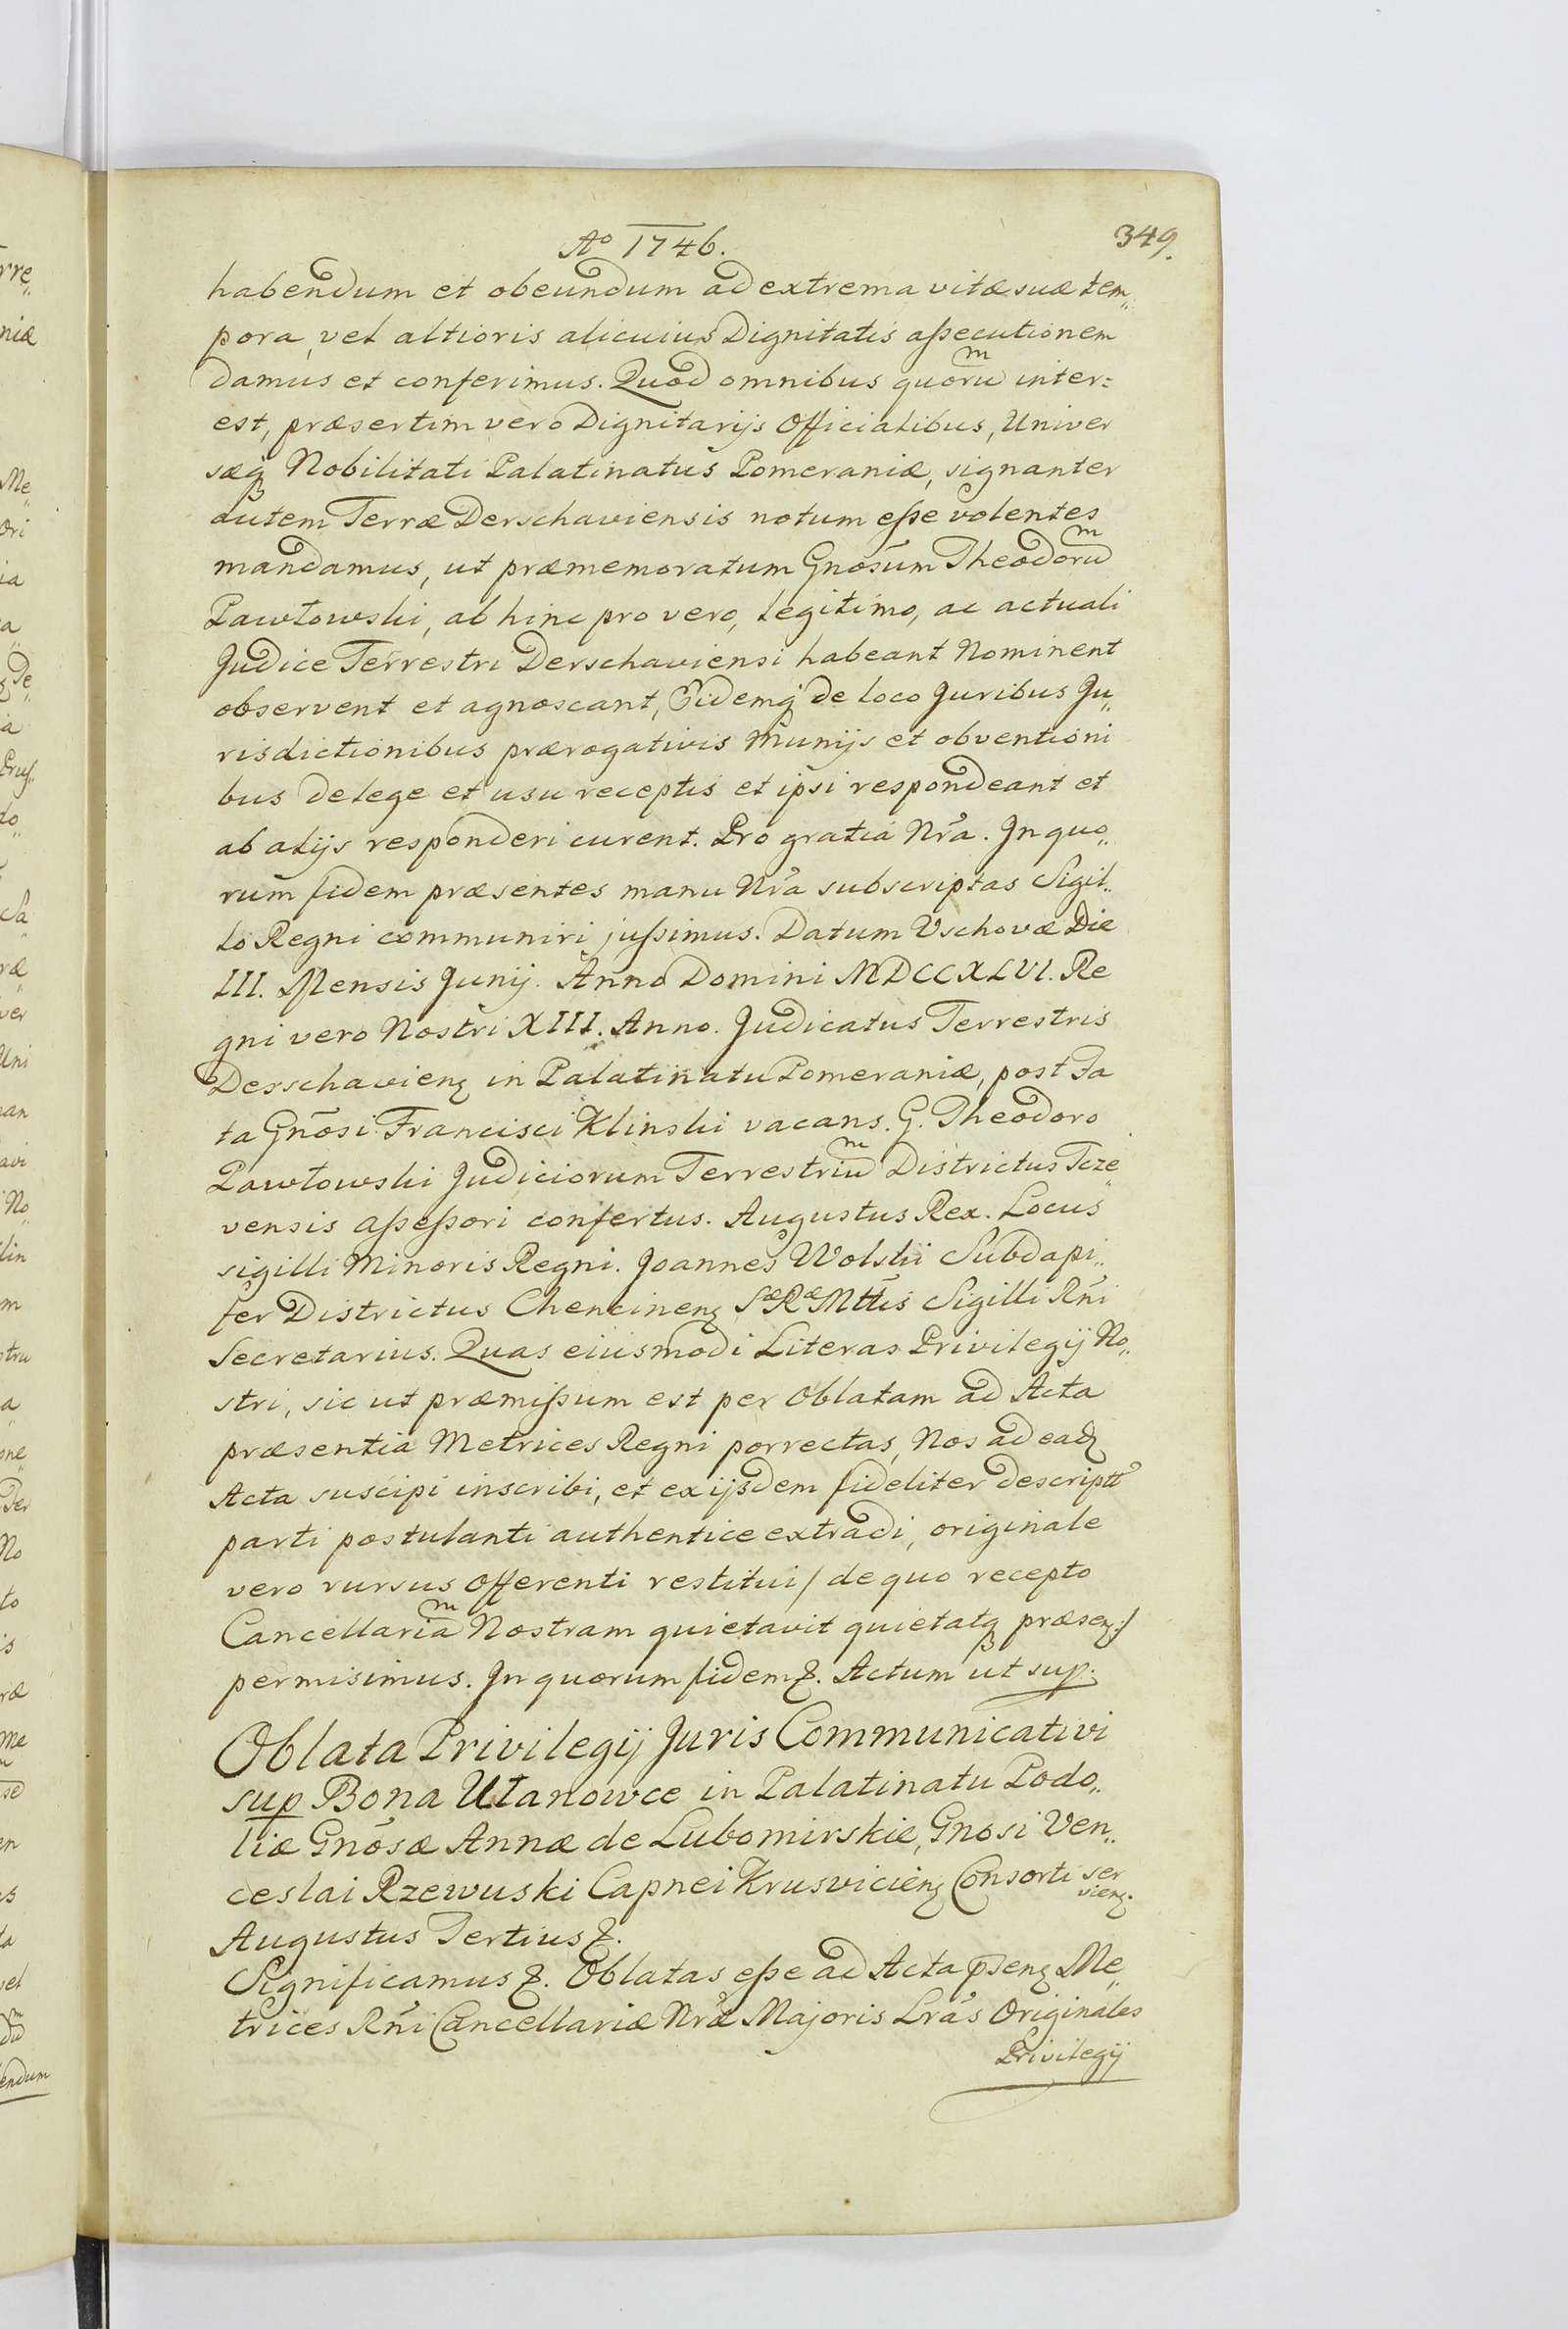 Aº 1746.
349.
habendum et obeundum ad extrema vitæ suæ tem„
pora, vel altioris alicuius Dignitatis aſsecutionem
damus et conferimus. Quod omnibus quoruᵐ inter=
est, præsertim vero Dignitarijs Officialibus, Univer
sæq̃ Nobilitati Palatinatus Pomeraniæ, signanter
autem Terræ Derschaviensis notum eſse volentes
mandamus, ut præmemoratum Gnosũm Theodoruᵐ
Pawłowski, ab hinc pro vero, legitimo, ac actuali
Judice Terrestri Derschaviensi habeant Nominent
observent et agnoscant, Eidemq̃ de loco Juribus Ju„
risdictionibus prærogativis Munijs et obventioni
bus de lege et usu receptis et ipsi respondeant et
ab alijs responderi curent. Pro gratia Nrã. In quo„
rum fidem præsentes manu Nrã subscriptas Sigil„
lo Regni communiri juſsimus. Datum Vschovæ Die
III. Mensis Junij. Anno Domini MDCCXLVI. Re
gni vero Nostri XIII. Anno. Judicatus Terrestris
Derschavienȝ in Palatinatu Pomeraniæ, post Fa
ta Gnõsi Francisci Klinski vacans. G. Theodoro
Pawłowski Judiciorum Terrestriuᵐ Districtus Tcze„
vensis aſseſsori confertus. Augustus Rex. Locus
sigilli Minoris Regni. Joannes Wolski Subdapi„
fer Districtus Chencinenȝ Sæ Ræ Mttis Sigilli Rñi
Secretarius. Quas eiusmodi Literas Privilegij No„
stri, sic ut præmiſsum est per Oblatam ad Acta
præsentia Metrices Regni porrectas, Nos ad eadȝ
Acta suscipi inscribi, et ex ijsdem fideliter descriptũ
parti postulanti authentice extradi, originale
vero rursus Offerenti restitui / de quo recepto
Cancellariaᵐ Nostram quietavit quietatq̃ præsenȝ:/
permisimus. In quorum fidem &. Actum ut sup.
Oblata Privilegij Juris Communicativi
sup Bona Ułanowce in Palatinatu Podo„
liæ Gnõsæ Annæ de Lubomirskie, Gnosi Ven„
ceslai Rzewuski Capnei Krusvicienȝ Consorti ser
vienȝ.
Augustus Tertius &.
Significamus &. Oblatas eſse ad Acta p̃senȝ Me„
trices Rñi Cancellariæ Nræ̃ Majoris Lrãs Originales
Privilegij